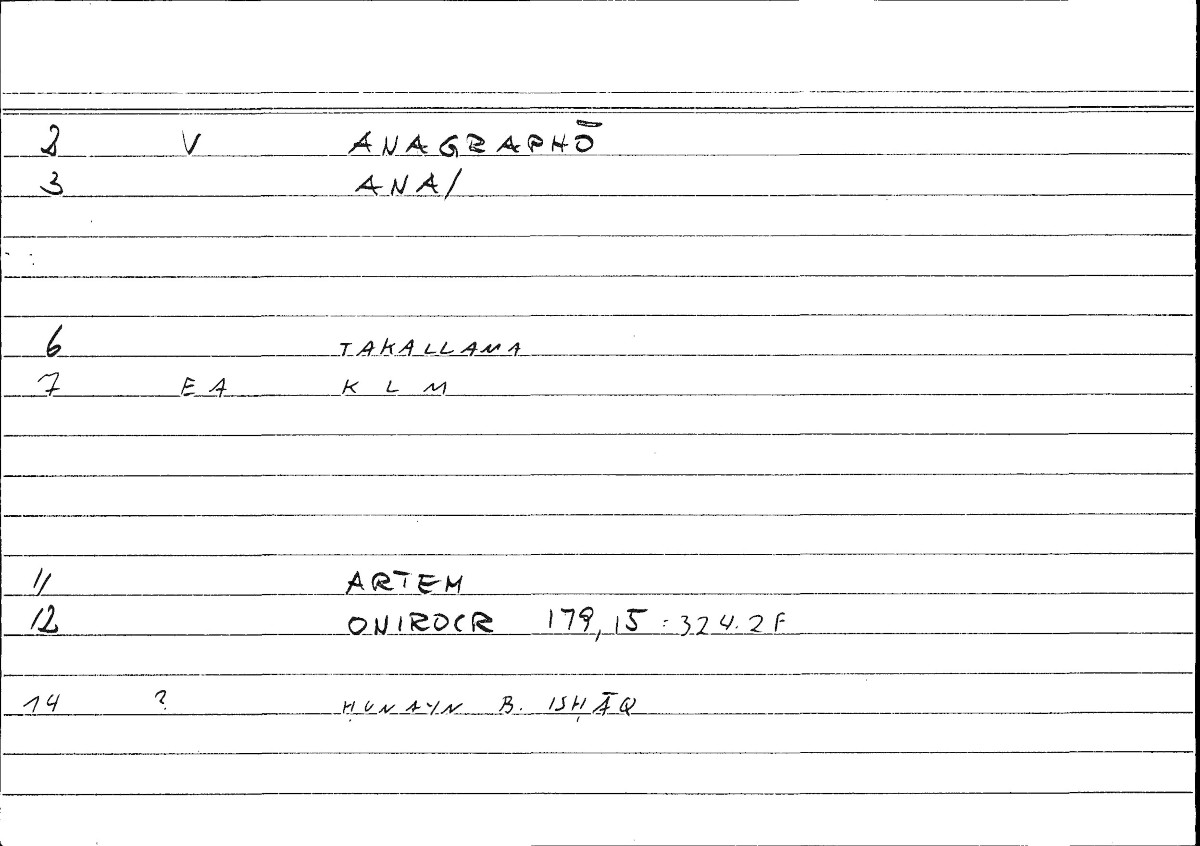 2 V ANAGRAPHŌ
3 ANA/
6 TAKALLAMA
7 EA K L M
11 ARTEM
12 ONIROCR 179,15:324.2F
14 ? ḤUNAYN B. ISḤĀQ